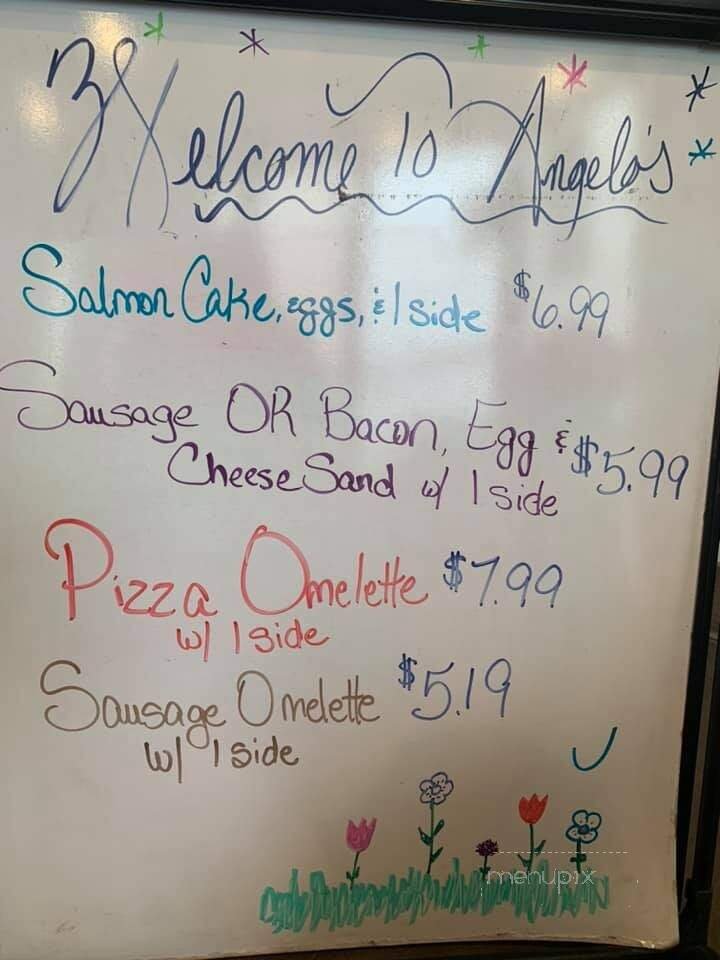 Welcome To Angelo's
Salmon Cake, eggs, & 1 side $6.99
Sausage OR Bacon, Egg & $5.99
Cheese Sand w/ 1 side
Pizza Omelette $7.99
w/ 1 side
Sausage Omelette $5.19
w/ 1 side
menupix